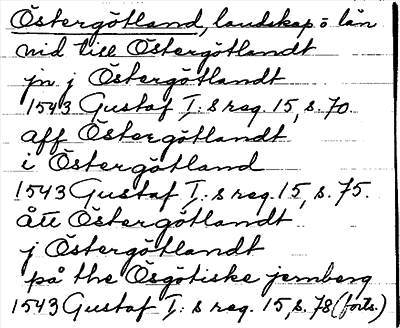 Östergötland, landskap o län
nid till Östergötlandt
jn j Östergötlandt
1543 Gustaf I:s reg. 15, s. 70.
aff Östergötlandt
i Östergötland
1543 Gustaf I:s reg. 15, s. 75.
ått Östergötlandt
j Östergötlandt
på the Ösgötiske jernberg
1543 Gustaf I:s reg. 15, s. 78 (forts.)